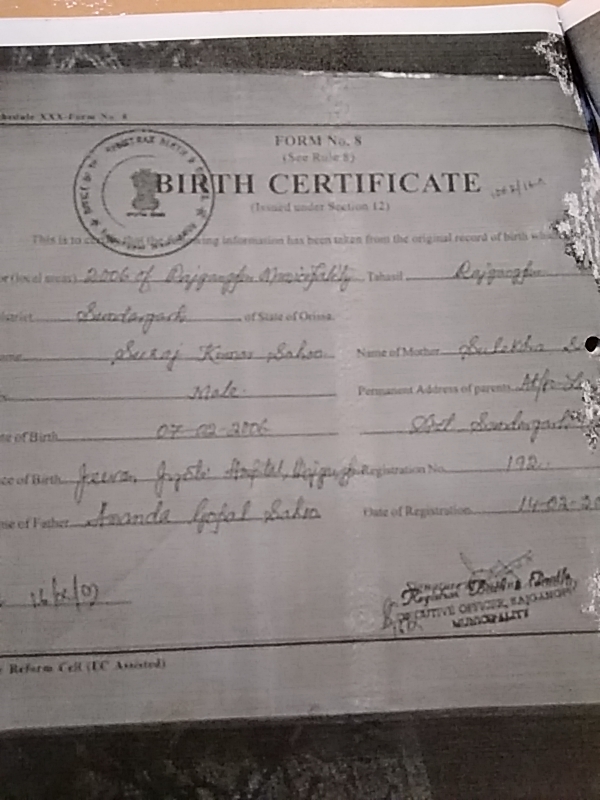 hedule XXX-Form No. 8
FORM No. 8
(See Rule 8)
BIRTH CERTIFICATE
(Issued under Section 12)
This is to certify that the following information has been taken from the original record of birth which
or (local area) 2006 of Rajgangpur Municipality Tahasil Rajgangpur
istrict Sundargarh of State of Orissa.
ame Suraj Kumar Sahoo Name of Mother Sulekha S
x Male Permanent Address of parents At/po
te of Birth 07-02-2006 Dist Sundargarh
ace of Birth Jeevan Jyoti Hospital, Rajgangpur Registration No. 192
me of Father Ananda Gopal Sahoo Date of Registration 14-02-20
Signature
Registrar Births
EXECUTIVE OFFICER, RAJGANGPUR
MUNICIPALITY
Reform Cell (EC Assisted)